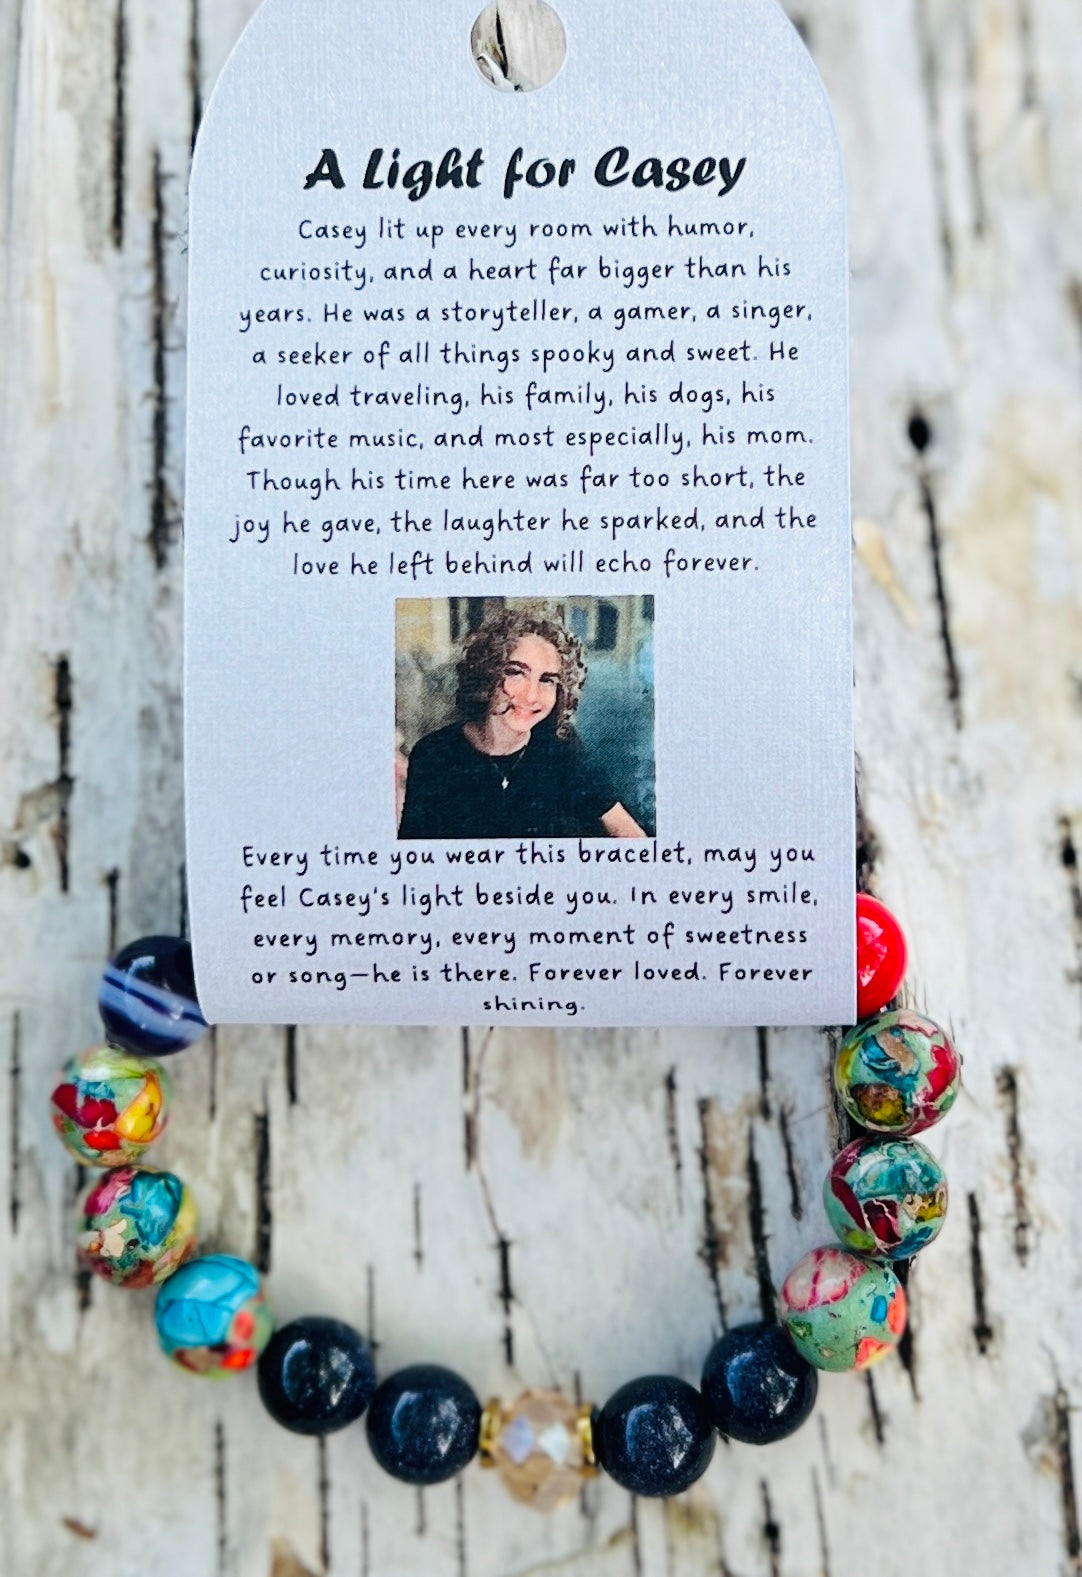 A Light for Casey
Casey lit up every room with humor,
curiosity, and a heart far bigger than his
years. He was a storyteller, a gamer, a singer,
a seeker of all things spooky and sweet. He
loved traveling, his family, his dogs, his
favorite music, and most especially, his mom.
Though his time here was far too short, the
joy he gave, the laughter he sparked, and the
love he left behind will echo forever.
Every time you wear this bracelet, may you
feel Casey's light beside you. In every smile,
every memory, every moment of sweetness
or song—he is there. Forever loved. Forever
shining.